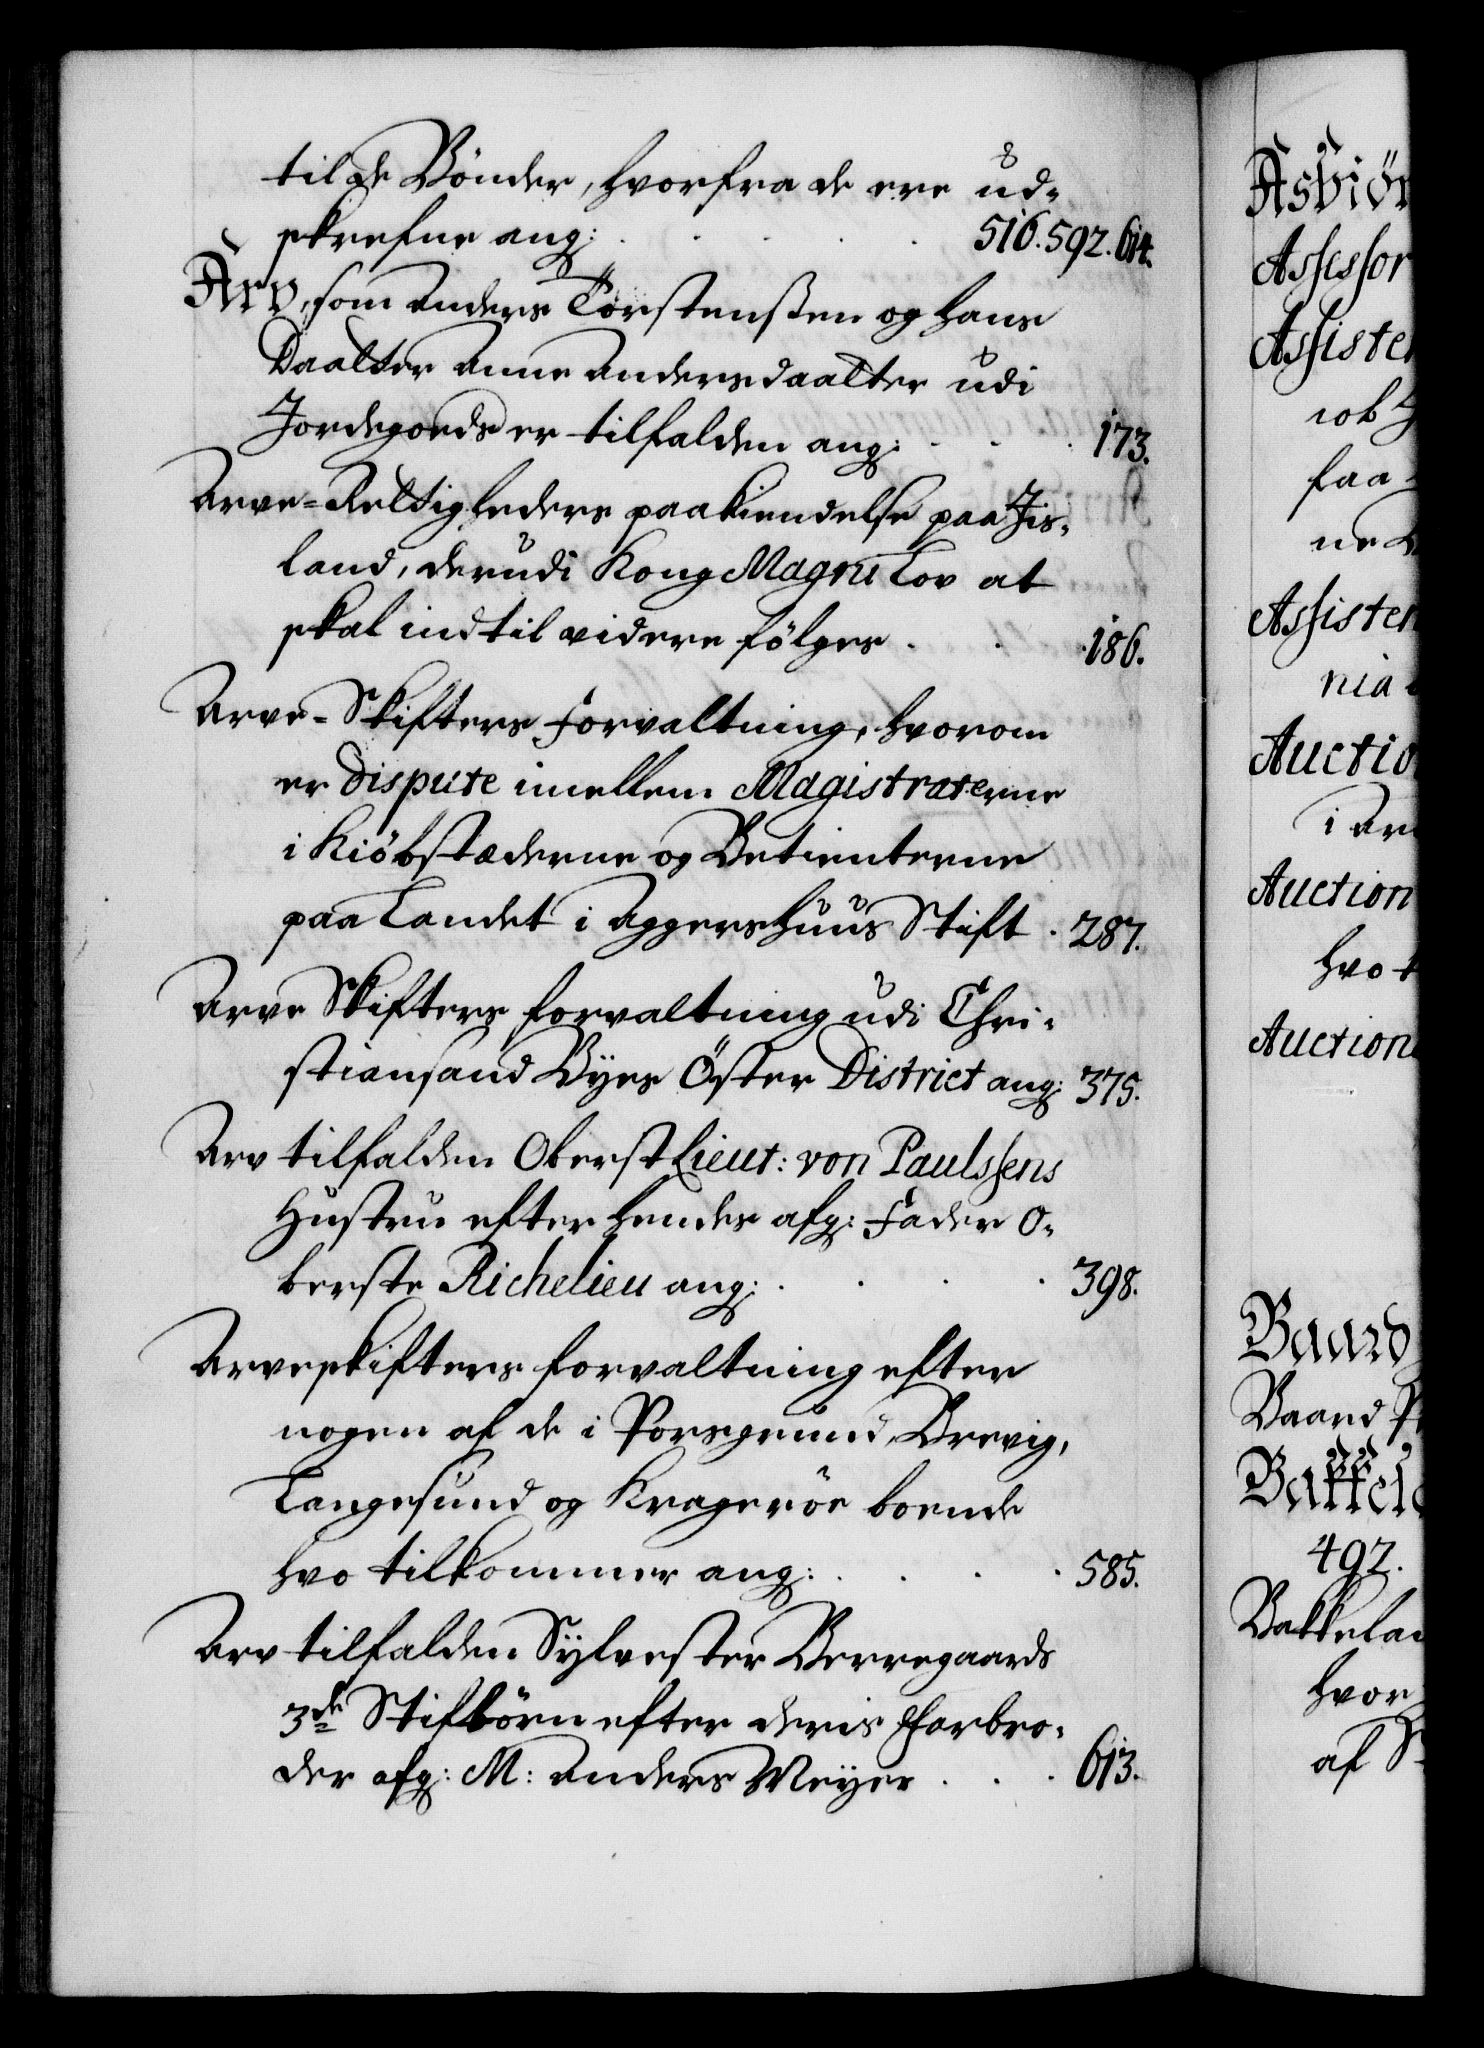 til de Bönder, hvorfra de ere ud-
skrefne ang: 516. 592. 614.
Arv, som Anders Torstenßen og hans
Daatter Anne Andersdaatter udi
Jordegods er tilfalden ang: 173.
Arve-Rettigheders paakiendelse paa Jis-
land, derudi Kong Magni Lov at
skal indtil videre fölges 186.
Arve-Skifters Forvaltning, hvorom
er Dispute imellem Magistraterne
i Kiöbstæderne og Betienterne
paa Landet i Aggershuus Stift 287.
Arve Skifters forvaltning udi Chri-
stiansand Byes Öster District ang: 375.
Arv tilfalden Oberst Lieut: von Paulssens
Hustru efter hendes afg: Fader O-
berste Richelieu ang: 398.
Arveskifters forvaltning efter
nogen af de i Porsgrund, Brevig,
Langesund og Krageröe boende
hvo tilkommer ang: 585.
Arv tilfalden Sylvester Berregaards
3de Stifbörn efter deris Farbro-
der afg: M: Anders Meyer 613.
Asbiör
Assessor
Assisten
faa
Assisten
nia
Auctio
Auction
hvo
Auction
Baard
Baard
Bakkel
492.
Bakkelan
hvor
af